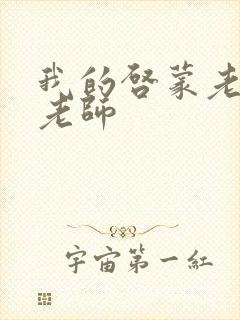 我的启蒙老
老師
宇宙第一紅